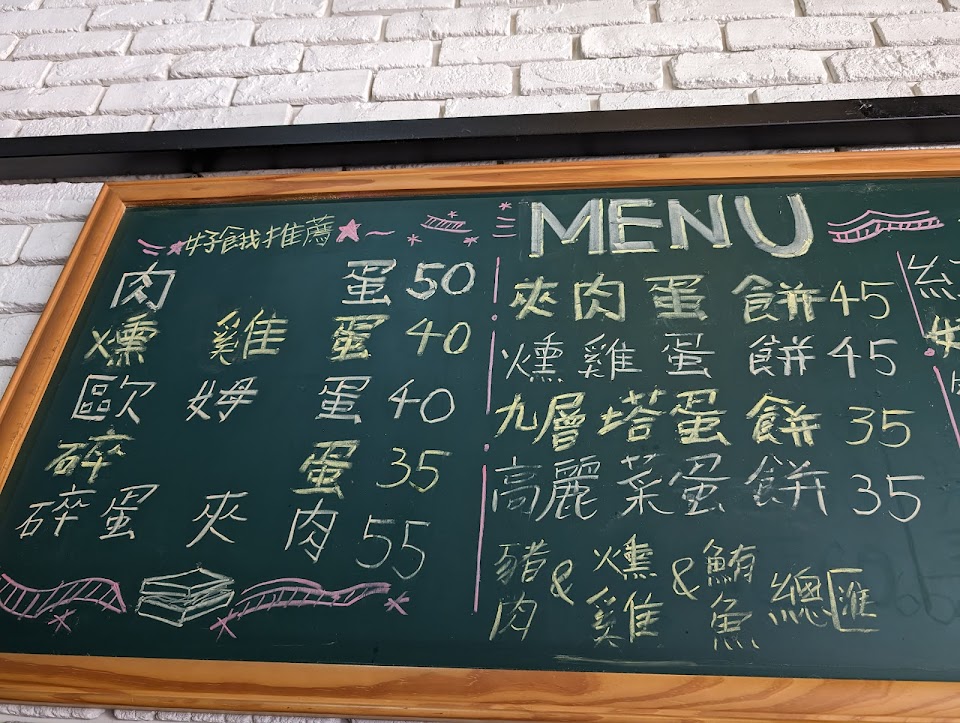 好餓推薦
肉蛋50
燻雞蛋40
歐姆蛋40
碎蛋35
碎蛋夾肉55
MENU
夾肉蛋餅45
燻雞蛋餅45
九層塔蛋餅35
高麗菜蛋餅35
豬肉&燻雞&鮪魚總匯